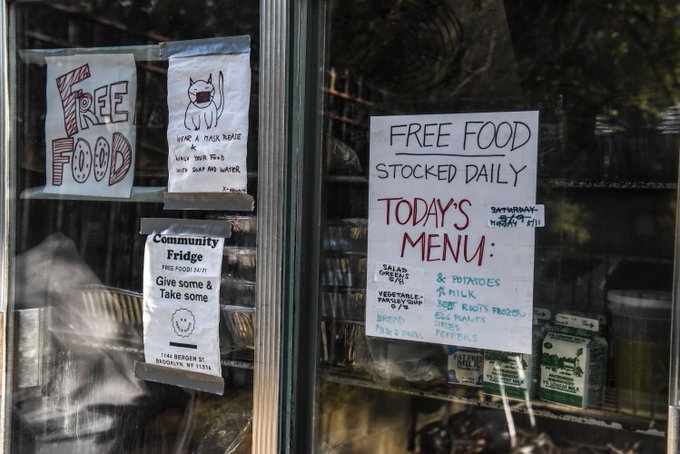 FREE
FOOD
WEAR A MASK PLEASE
WASH YOUR FOOD
WITH SOAP AND WATER
Community
Fridge
FREE FOOD! 24/7!
Give some &
Take some
1144 BERGEN ST.
BROOKLYN, NY 11216
FREE FOOD
STOCKED DAILY
TODAY'S
MENU:
SATURDAY
5/9
MONDAY 5/11
SALAD
GREENS
5/8
VEGETABLE-
PARSLEY SOUP
5/9
BREAD
& POTATOES
MILK
BEET ROOTS FROZEN
EGG PLANTS
LIMES
PEPPERS
FAT FREE
MILK
LOWFAT MILK